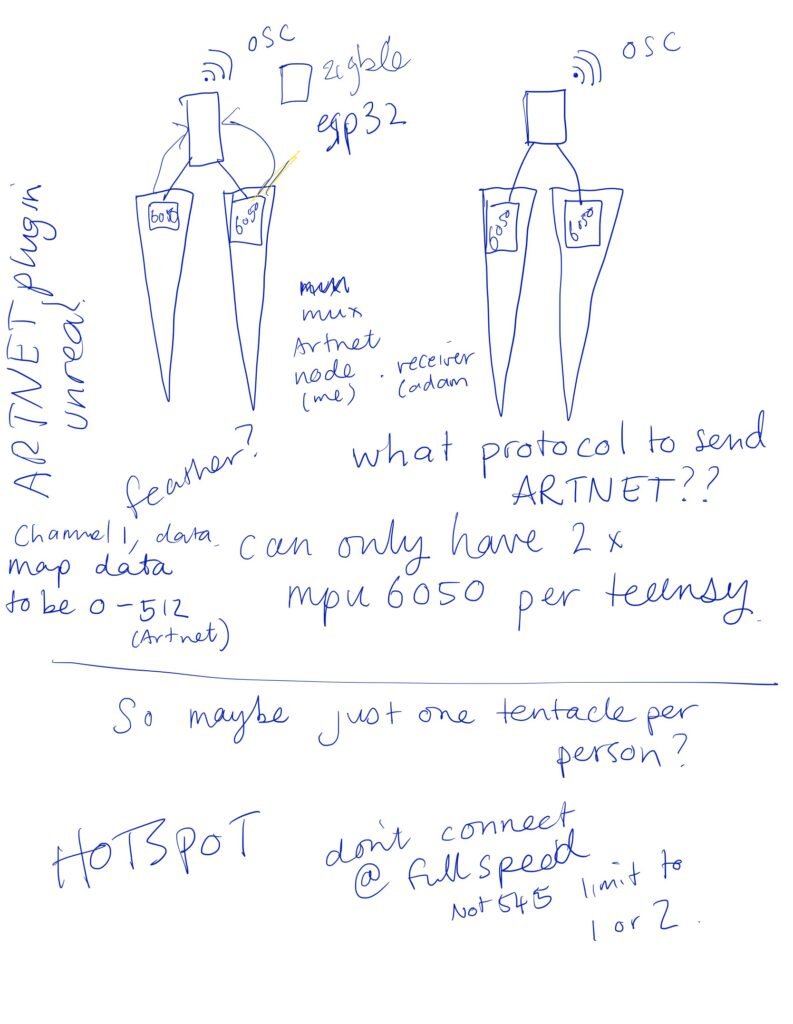 OSC
zigble
esp32
OSC
6050
6050
6050
6050
ARTNET plugin
unreal
mux
Artnet
node
(me)
. receiver
(adam
feather?
what protocol to send
ARTNET??
Channel 1, data
map data
to be 0-512
(Artnet)
can only have 2 x
mpu 6050 per teensy.
So maybe just one tentacle per
person?
HOTSPOT
don't connect
@ full speed
Not 545 limit to
1 or 2.